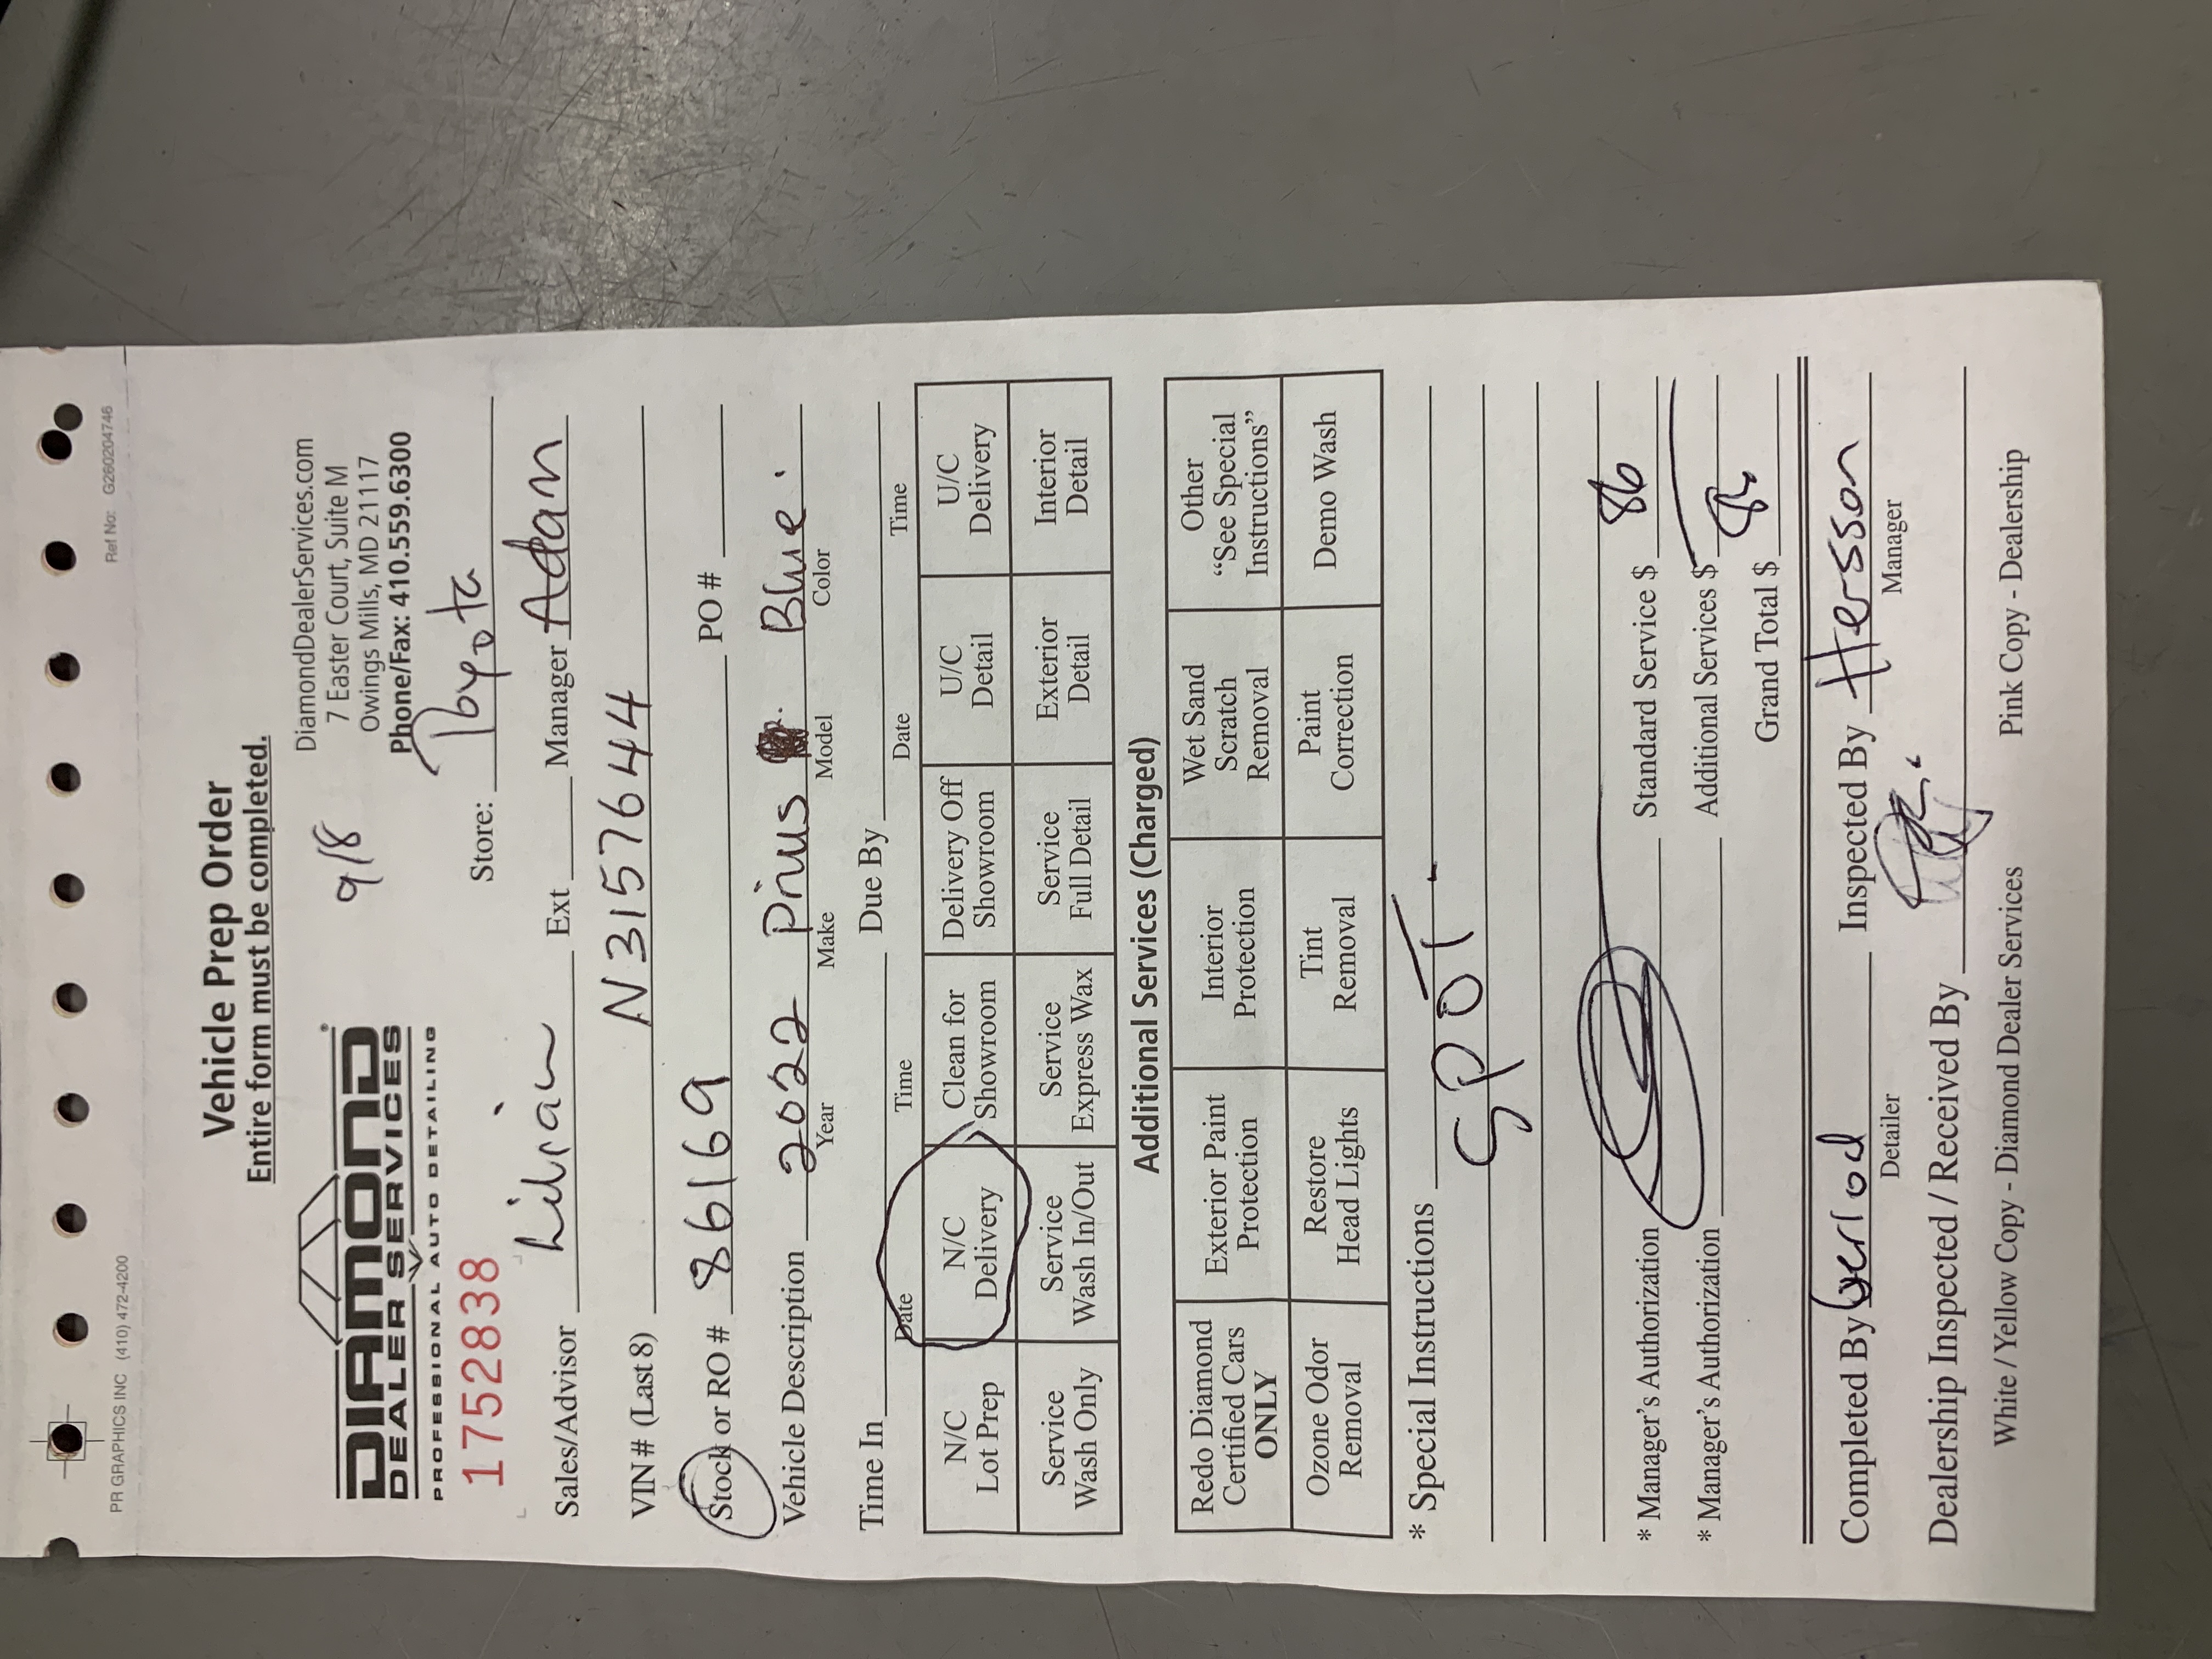 PR GRAPHICS INC (410) 472-4200 Ref No: G2602047​46
Vehicle Prep Order
Entire form must be completed.
DIAMOND®
DEALER SERVICES
PROFESSIONAL AUTO DETAILING
9/8
DiamondDealerServices.com
7 Easter Court, Suite M
Owings Mills, MD 21117
Phone/Fax: 410.559.6300
1752838
Store: Toyota
Sales/Advisor Lilian Ext Manager Adan
VIN# (Last 8) N3157644
Stock or RO # 86169 PO #
Vehicle Description 2022 Prius Blue.
Year Make Model Color
Time In Due By
Date Time Date Time
N/C Lot Prep N/C Delivery Clean for Showroom Delivery Off Showroom U/C Detail U/C Delivery
Service Wash Only Service Wash In/Out Service Express Wax Service Full Detail Exterior Detail Interior Detail
Additional Services (Charged)
Redo Diamond Certified Cars ONLY Exterior Paint Protection Interior Protection Wet Sand Scratch Removal Other "See Special Instructions"
Ozone Odor Removal Restore Head Lights Tint Removal Paint Correction Demo Wash
* Special Instructions SPOT
* Manager's Authorization Standard Service $ 86
* Manager's Authorization Additional Services $
Grand Total $ 86
Completed By Inspected By Hersson
Detailer Manager
Dealership Inspected / Received By
White / Yellow Copy - Diamond Dealer Services Pink Copy - Dealership